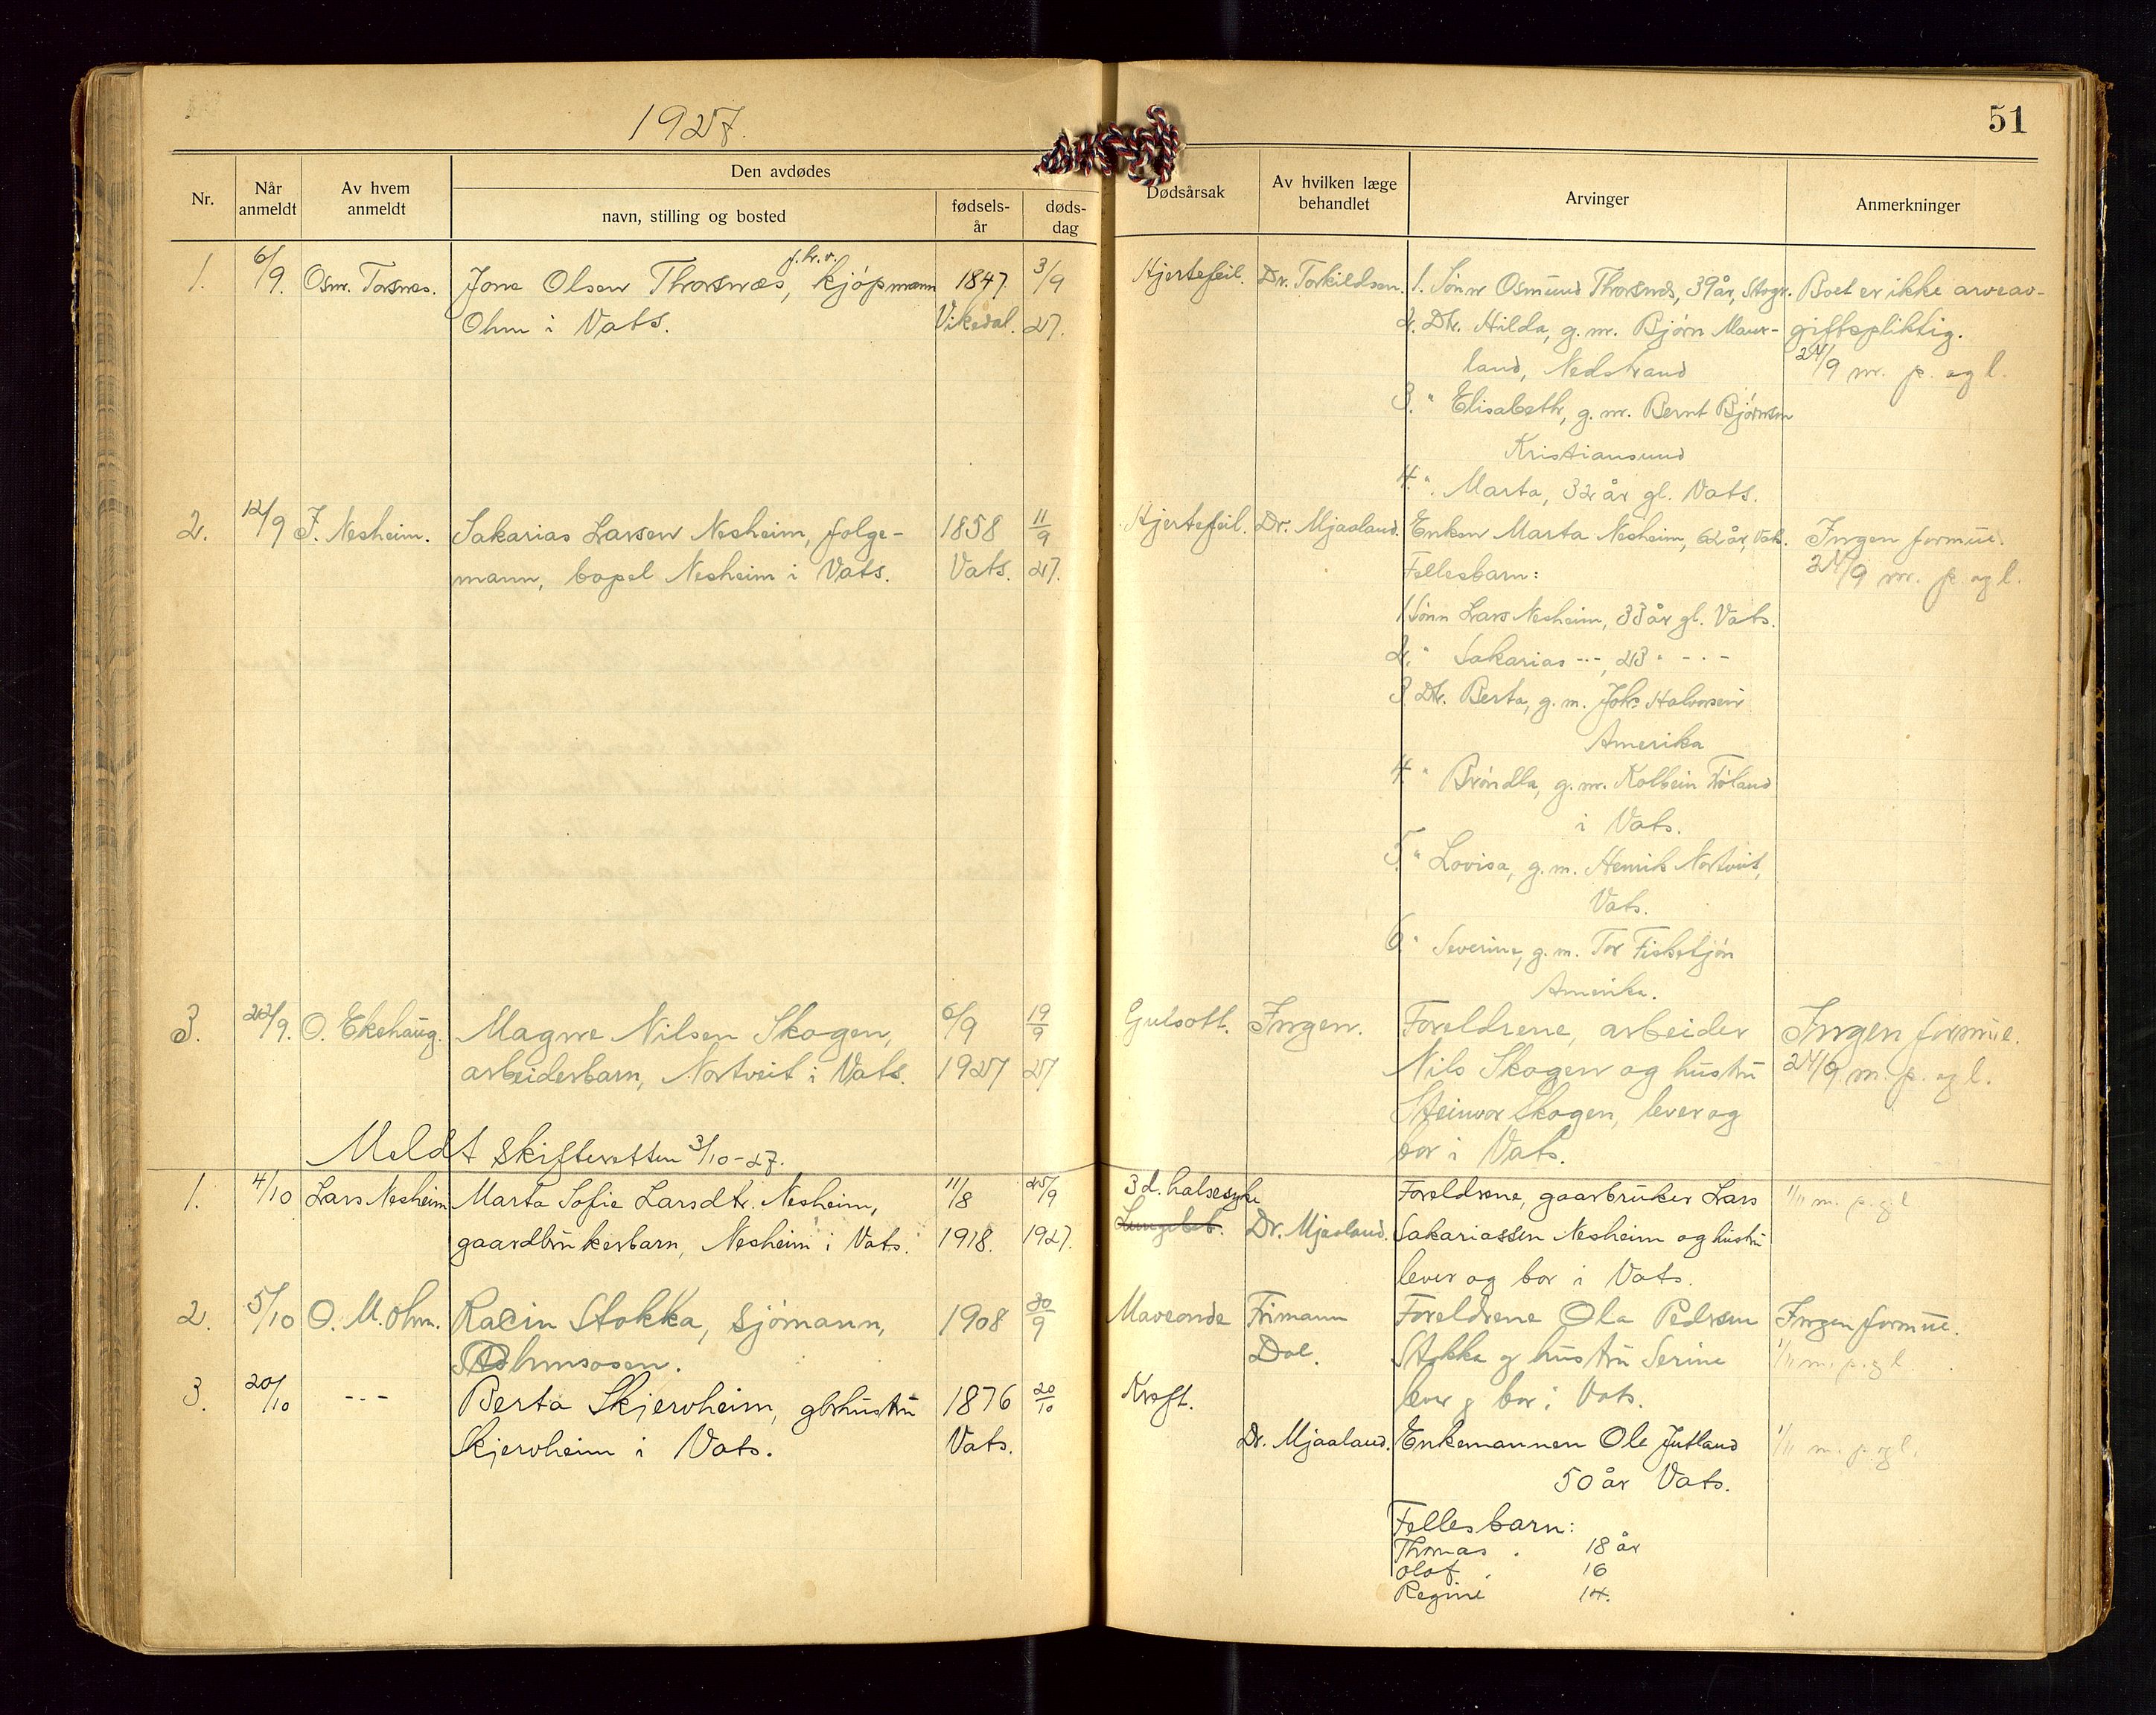 1927.
51
Nr.
Når anmeldt
Av hvem anmeldt
Den avdødes
navn, stilling og bosted
fødsels-år
døds-dag
Dødsårsak
Av hvilken læge behandlet
Arvinger
Anmerkninger
1. 6/9. Osm. Torsnes. Jone Olsen Thorsnæs, f.h.v. kjøpmann 1847 3/9 Hjertefeil. Dr. Torkildsen. 1. Sønn Osmund Thorsnæs, 39 år, Stogr. Boet er ikke arveav-
Ohm i Vats. Vikedal. 27. 2. Dtr. Hilda, g. m. Bjørn Maur- giftspliktig.
land, Nedstrand 24/9 m. p. og l.
3. " Elisabeth, g. m. Bernt Bjørnsen
Kristiansund
4. " Marta, 32 år gl. Vats.
2. 12/9 J. Nesheim. Sakarias Larsen Nesheim, folge- 1858 11/9 Hjertefeil. Dr. Mjaaland. Enken Marta Nesheim, 62 år, Vats. Ingen formue.
mann, bopel Nesheim i Vats. Vats. 27. Fellesbarn: 24/9 m. p og l.
1 Sønn Lars Nesheim, 33 år gl. Vats.
2. " Sakarias --- , 23 " - - -
3 Dtr. Berta, g. m. Johs Halvorsen
Amerika
4 " Brøndla, g. m. Kolbein
i Vats.
5. " Lovisa, g. m. Henrik Nortveit,
Vats.
6 " Severine, g. m. Tor Fisketjøn
Amerika.
3. 22/9. O. Ekshaug. Magne Nilsen Skogen, 6/9 19/9 Gulsott. Ingen. Foreldrene, arbeider Ingen formue.
arbeiderbarn, Nortveit i Vats. 1927 27 Nils Skogen og hustru 24/9 m. p. og l.
Steinvor Skogen, lever og
bor i Vats.
Meldt skifteretten 3/10-27.
1. 4/10 Lars Nesheim Marta Sofie Larsdtr. Nesheim, 11/8 25/9 3 d. halsesyke Foreldrene, gaarbruker Lars 1/11 m. p. og l
gaardbrukerbarn, Nesheim i Vats. 1918. 1927. Dr. Mjaaland. Sakariassen Nesheim og hustru
lever og bor i Vats.
2. 5/10 O. M. Ohm. Racin Stokka, sjømann, 1908 30/9 Maveonde Frimann Foreldrene Ola Pedersen Ingen formue.
Ohmsosen. Dal. Stokka og hustru Serine 1/11 m. p. og l
lever og bor i Vats.
3. 20/10 --- Berta Skjervheim, gbrhustru 1876 20/10 Kreft.
Skjervheim i Vats. Vats. Dr. Mjaaland. Enkemannen Ole Jutland 1/11 m. p. og l.
50 år Vats.
Fellesbarn:
Thomas . 18 år
Olaf . 16
Regine 14.